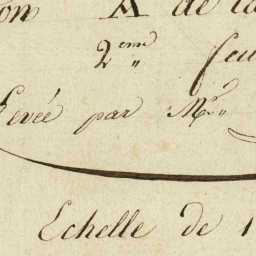 on A de la
2eme feu
Levée par Mr
Echelle de 1